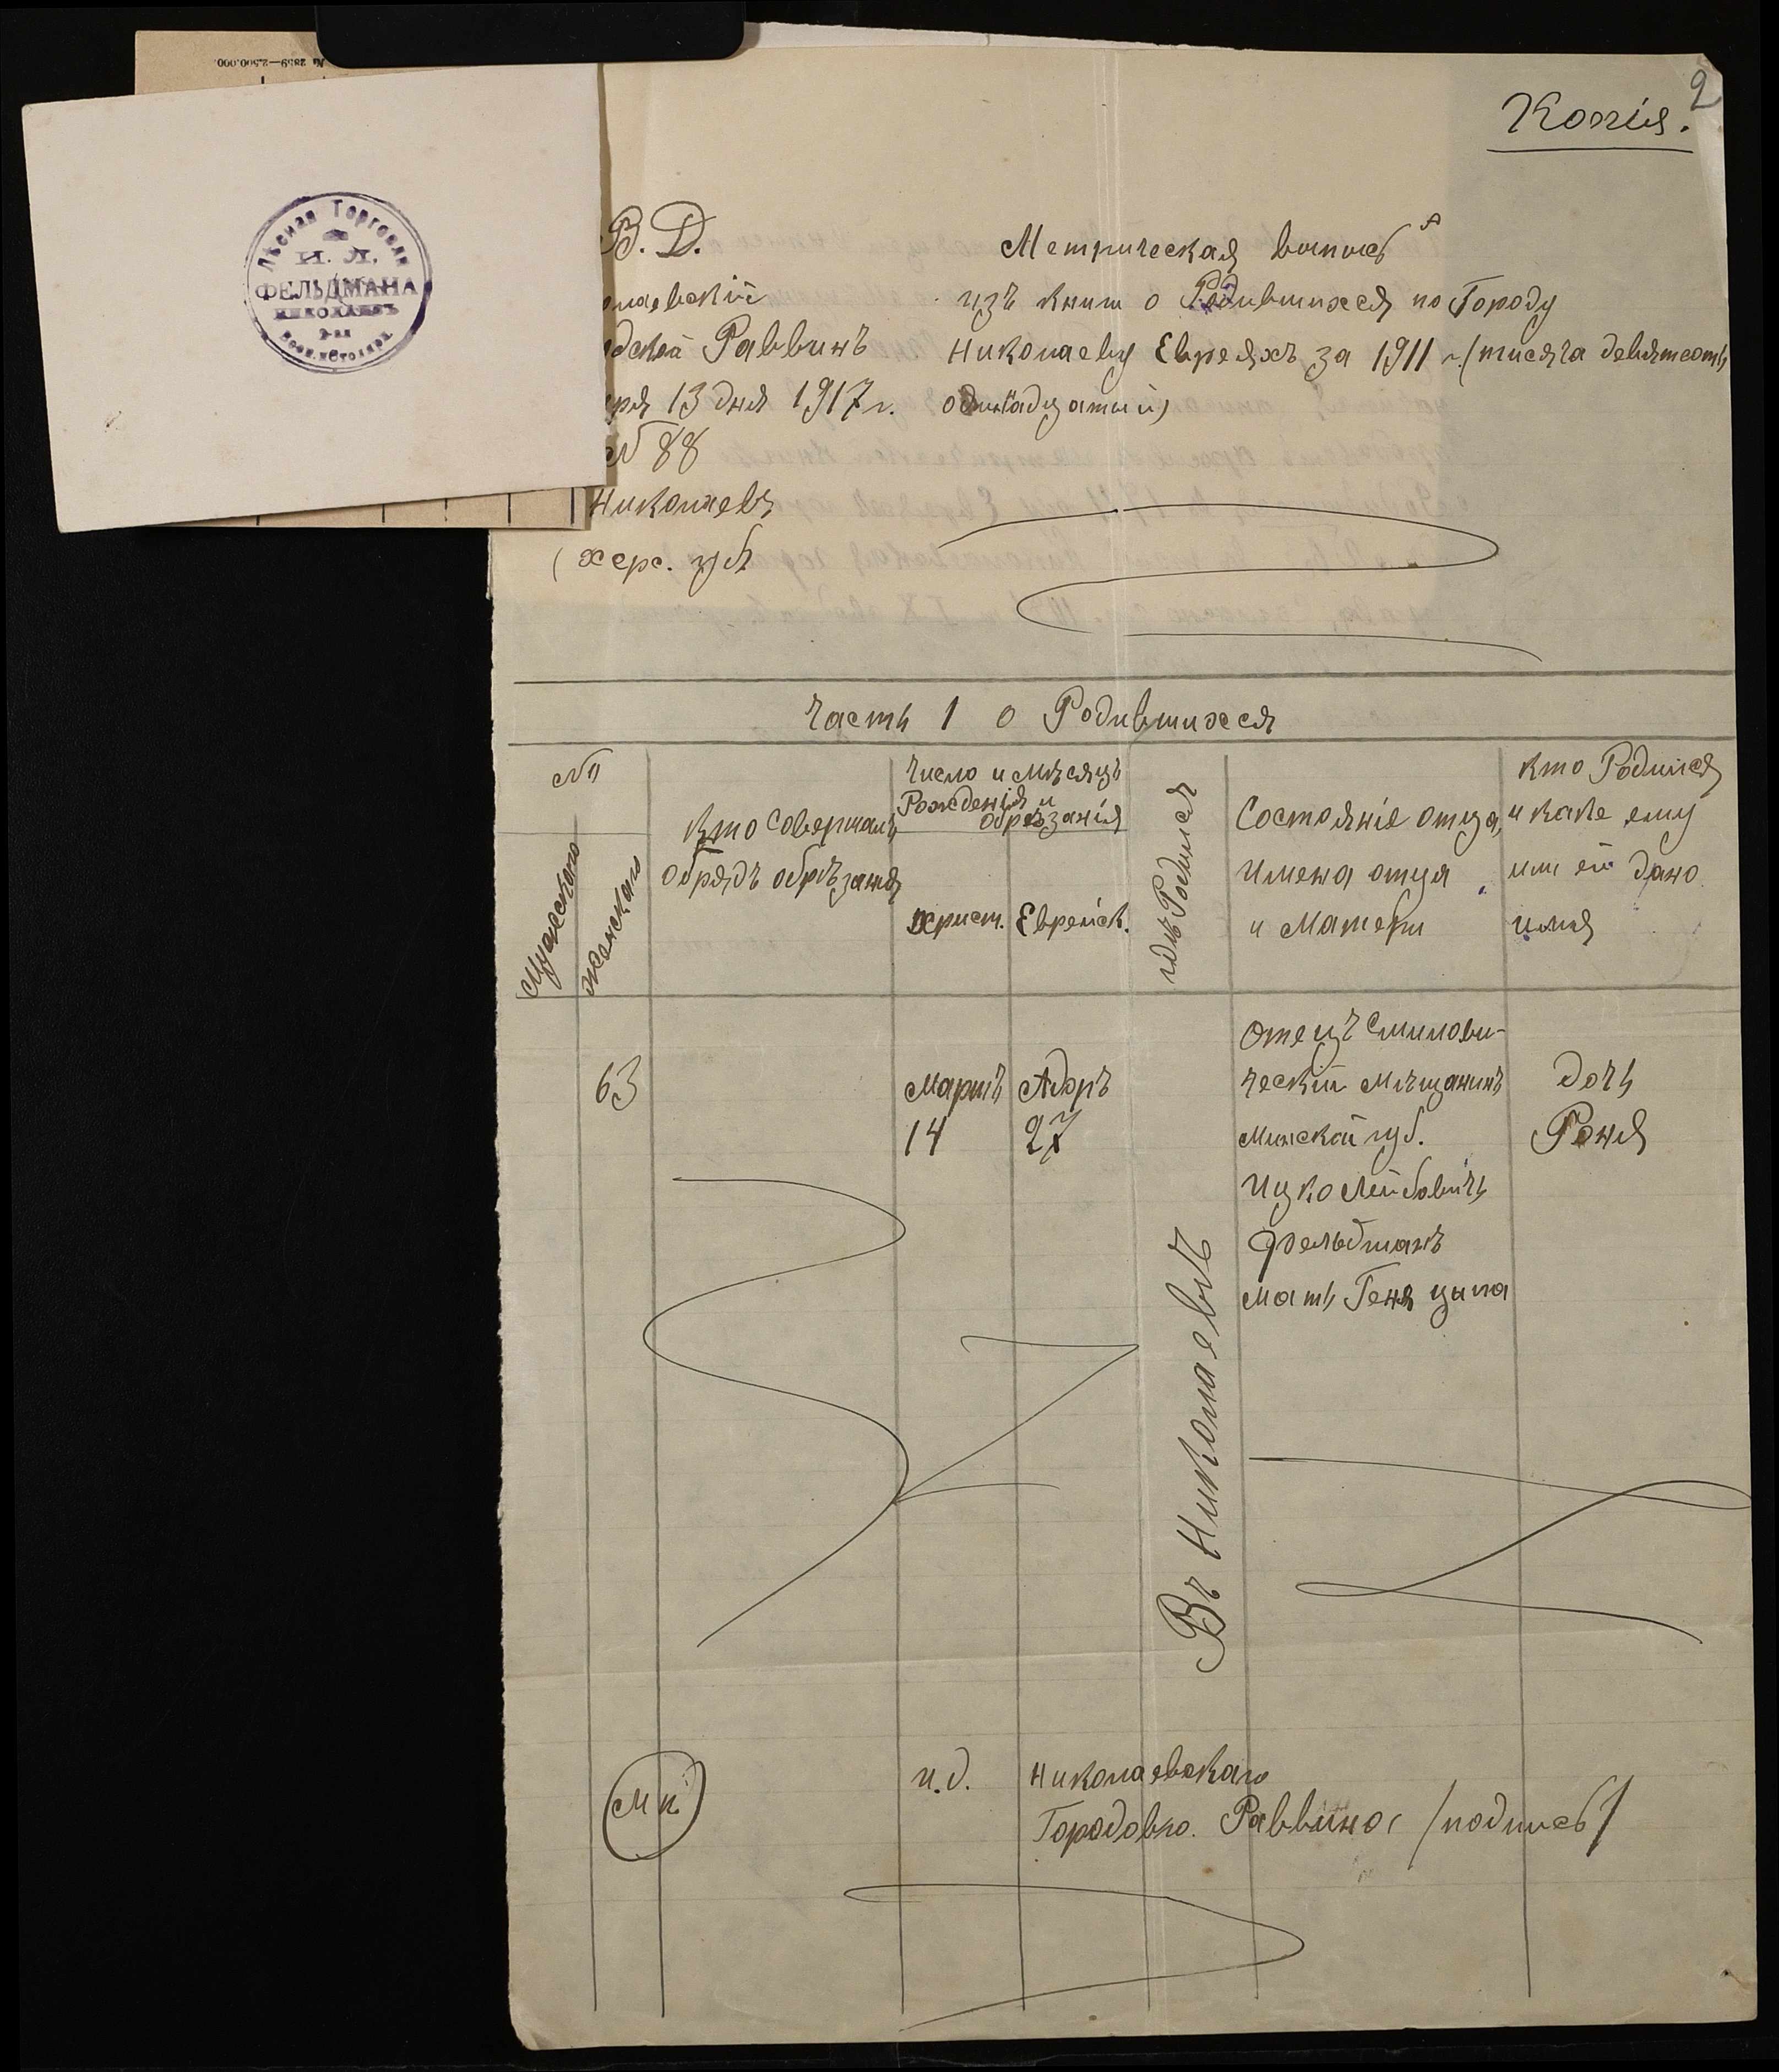 № 2859—2.500.000.
2
Копія.
Лѣсная Торговля
И. Л.
ФЕЛЬДМАНА
НИКОЛАЕВЪ
В. Д.
олаевскій
одской Раввинъ
ря 13 дня 1917 г.
№ 88
Николаевъ
(Херс. губ.
Метрическая выпись
изъ книги о Родившихся по Городу
Николаеву Евреяхъ за 1911 г. (тысяча девятсотъ
одиннадцатый)
Часть 1 о Родившихся
№
Мужескаго
Женскаго
Кто совершалъ
обрядъ обрѣзанія
Число и Мѣсяцъ
Рожденія и
обрѣзанія
христ.
Еврейск.
гдѣ Родился
Состояніе отца,
имена отца
и Матери
Кто Родился
и какое ему
или ей дано
имя
63
Мартъ
14
Адаръ
27
Въ Николаевѣ
Отецъ Смилови-
ческій мѣщанинъ
Минской губ.
Ицко Лейбовичъ
Фельдманъ
Мать Геня Цыпа
Дочь
Роня
М п
и. д. Николаевскаго
Городового. Раввина /подпись/